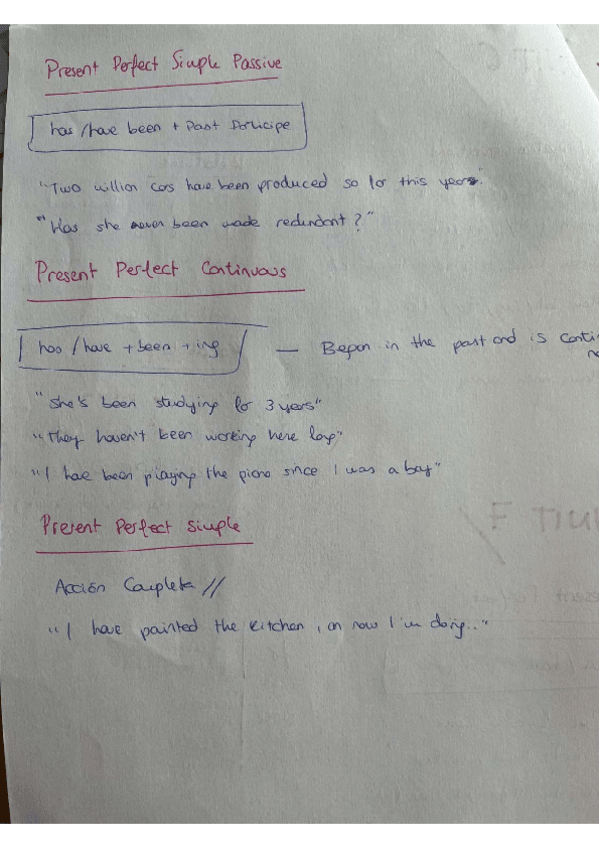 Present Perfect Simple Passive
has / have been + Past Participe
"Two million cars have been produced so far this years."
"Has she never been made redundant?"
Present Perfect Continuous
has / have + been + ing — Began in the past and is conti
"She's been studying for 3 years"
"They haven't been working here long"
"I have been playing the piano since I was a boy"
Present Perfect Simple
Acción Completa //
"I have painted the kitchen, on now I'm doing..."